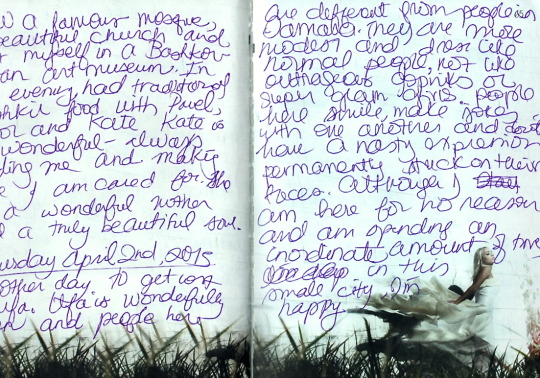 a famous mosque,
beautiful church and
myself in a Bashkor-
an art museum. In
evening had traditional
food with Pavel,
and Kate. Kate is
wonderful - always
me and making
I am cared for. She
a wonderful mother
a truly beautiful soul.
April 2nd, 2015
other day. to get lost
Ufa. Ufa is wonderfully
and people here
are different from people in
They are more
modest and dress like
normal people, not like
or
glam People
here smile, make jokes
with one another and don't
have a nasty expression
permanently stuck on their
faces. Although I
am here for no reason
and am spending an
inordinate amount of time
in this
small city I'm
happy